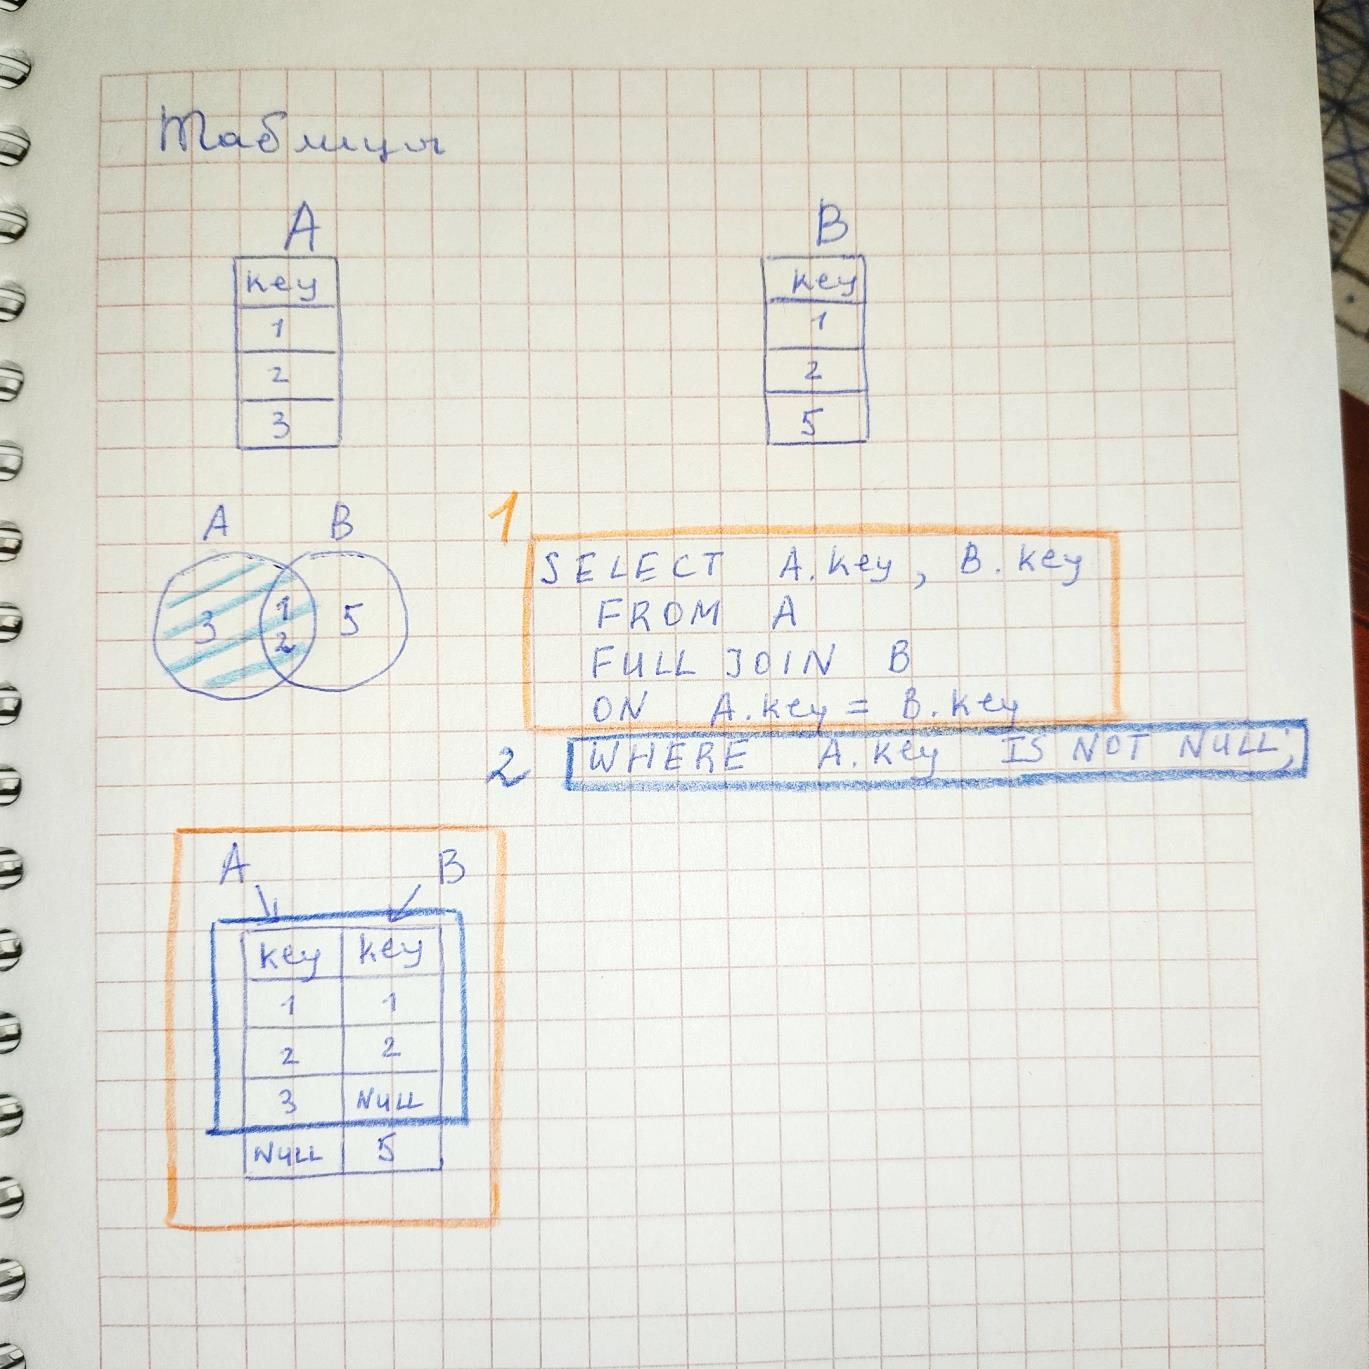 Таблицы
A B
key key
1 1
2 2
3 5
A B
3 1 2 5
1
SELECT A.key, B.key
FROM A
FULL JOIN B
ON A.key = B.key
2 WHERE A.key IS NOT NULL;
A B
key key
1 1
2 2
3 NULL
NULL 5